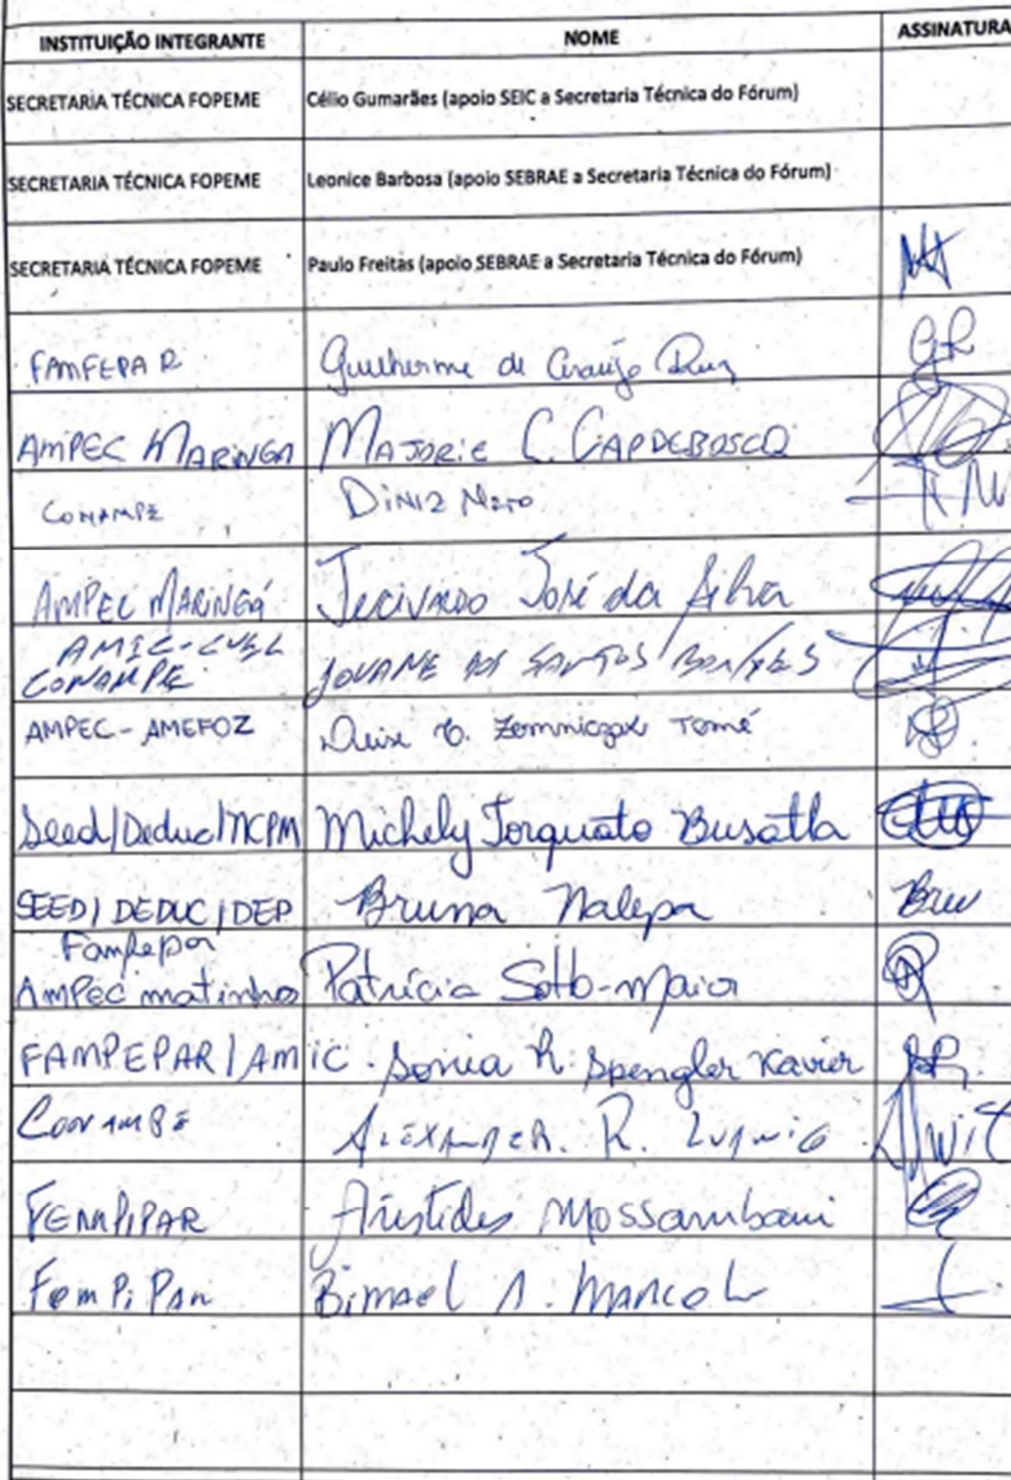 INSTITUIÇÃO INTEGRANTE NOME ASSINATURA
SECRETARIA TÉCNICA FOPEME Célio Gumarães (apoio SEIC a Secretaria Técnica do Fórum)
SECRETARIA TÉCNICA FOPEME Leonice Barbosa (apoio SEBRAE a Secretaria Técnica do Fórum)
SECRETARIA TÉCNICA FOPEME Paulo Freitas (apoio SEBRAE a Secretaria Técnica do Fórum)
FAMFEPAR Guilherme de Araújo
AMPEC MARINGA MAJORIE C. CAPDEBOSCQ
CONAMPE DINIZ
AMPEC MARINGÁ JECIVALDO José da Silva
AMIC
CONAMPE JOVANE DOS SANTOS
AMPEC - AMEFOZ Tomé
Seed/Deduc/ Michely Torquato Busatta
SEED/DEDUC/DEP Bruna Nalepa
Fampepar
AMPEC matinhos Patrícia Sotto-maior
FAMPEPAR/AMIC Sonia R. Spengler Xavier
ALEXANDER. R. LUDWIG
FEMPIPAR Aristides Mossambani
FEMPiPAR Bimael A.